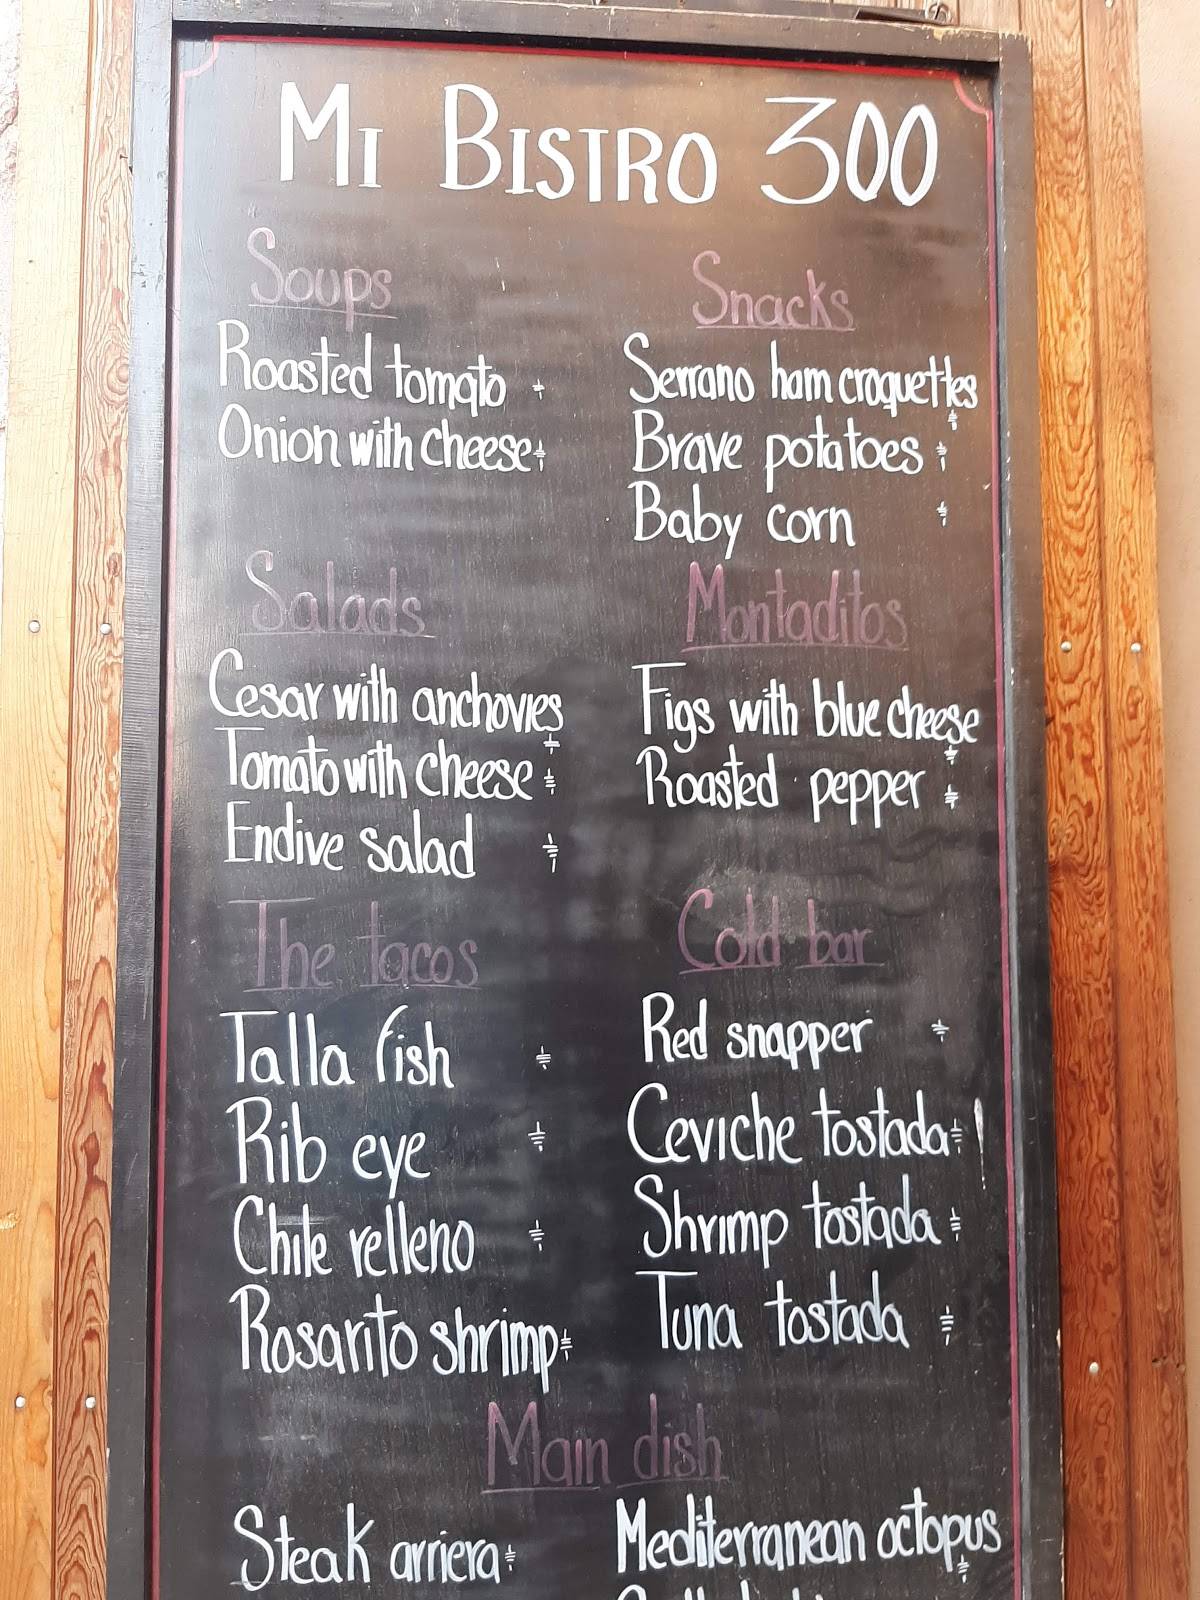 MI BISTRO 300
Soups
Roasted tomato
Onion with cheese
Snacks
Serrano ham croquettes
Brave potatoes
Baby corn
Salads
Cesar with anchovies
Tomato with cheese
Endive salad
Montaditos
Figs with blue cheese
Roasted pepper
The tacos
Talla fish
Rib eye
Chile relleno
Rosarito shrimp
Cold bar
Red snapper
Ceviche tostada
Shrimp tostada
Tuna tostada
Main dish
Steak arriera
Mediterranean octopus